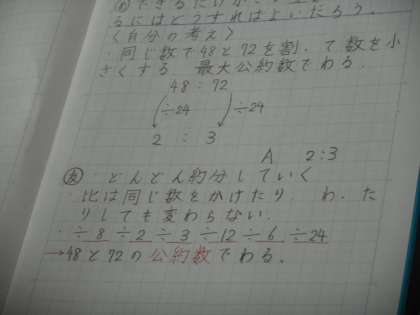 できるだけか
るにはどうすればよいだろう。
〈自分の考え〉
・同じ数で48と72を割って数を小
さくする 最大公約数でわる。
48 : 72
÷24 ÷24
2 : 3
A 2:3
友 どんどん約分していく
・比は同じ数をかけたり わった
りしても変わらない。
・÷8 ÷2 ÷3 ÷12 ÷6 ÷24
→48と72の公約数でわる。